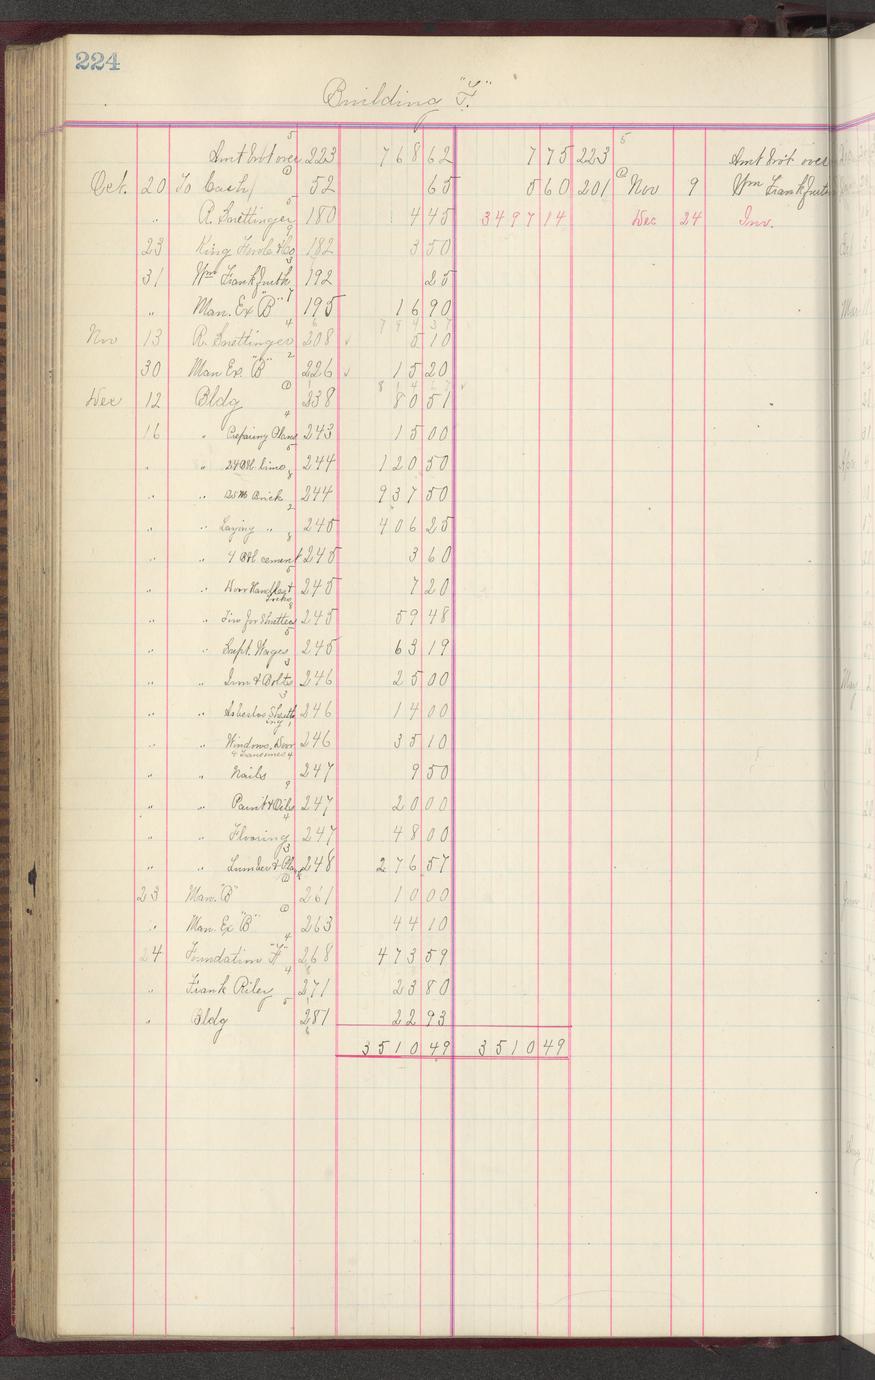 224
Building "F".
Amt brot over 223 768 62 7 75 223 Amt brot over
Oct. 20 To Cash 52 65 5 60 201 Nov 9 Wm Frankfurth
" R. Snettinger 180 4 45 3497 14 Dec 24 Inv.
23 King & Co 182 3 50
31 Wm Frankfurth 192 25
" Man. Ex "B" 195 16 90
794 37
Nov 13 R. Snettinger 208 ✓ 5 10
30 Man Ex. "B" 226 ✓ 15 20
814 67 ✓
Dec 12 Bldg 238 80 51
16 " Preparing Plans 243 15 00
" " Bbl. lime 244 120 50
" " M Brick 244 937 50
" " Laying " 245 406 25
" " 4 Bbl cement 245 3 60
" " Door Hangers & Locks 245 7 20
" " Tin for Shutters 245 59 48
" " Supt. Wages 245 63 19
" " Iron & Bolts 246 25 00
" " Asbestos Sheeting 246 14 00
" " Windows, Door & Transomes 246 35 10
" " Nails 247 9 50
" " Paint & Oils 247 20 00
" " Flooring 247 48 00
" " Lumber & 248 276 57
23 Man. "B" 261 10 00
" Man. Ex "B" 263 44 10
24 Foundation "F" 268 473 59
" Frank Riley 271 23 80
" Bldg 281 22 93
3510 49 3510 49